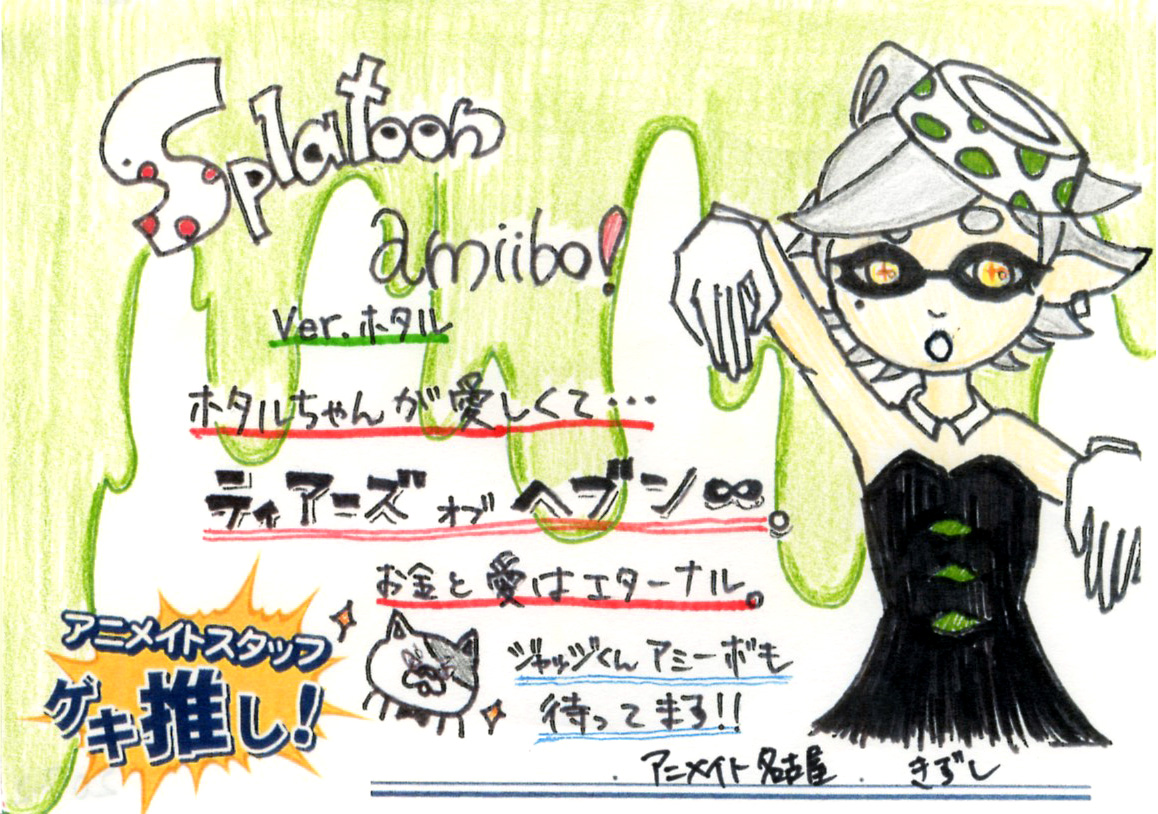 Splatoon
amiibo!
Ver.ホタル
ホタルちゃんが愛しくて…
ティアーズ オブ ヘブン∞。
お金と愛はエターナル。
ジャッジくんアミーボも
待ってまる!!
アニメイトスタッフ
ゲキ推し!
アニメイト名古屋. きずし